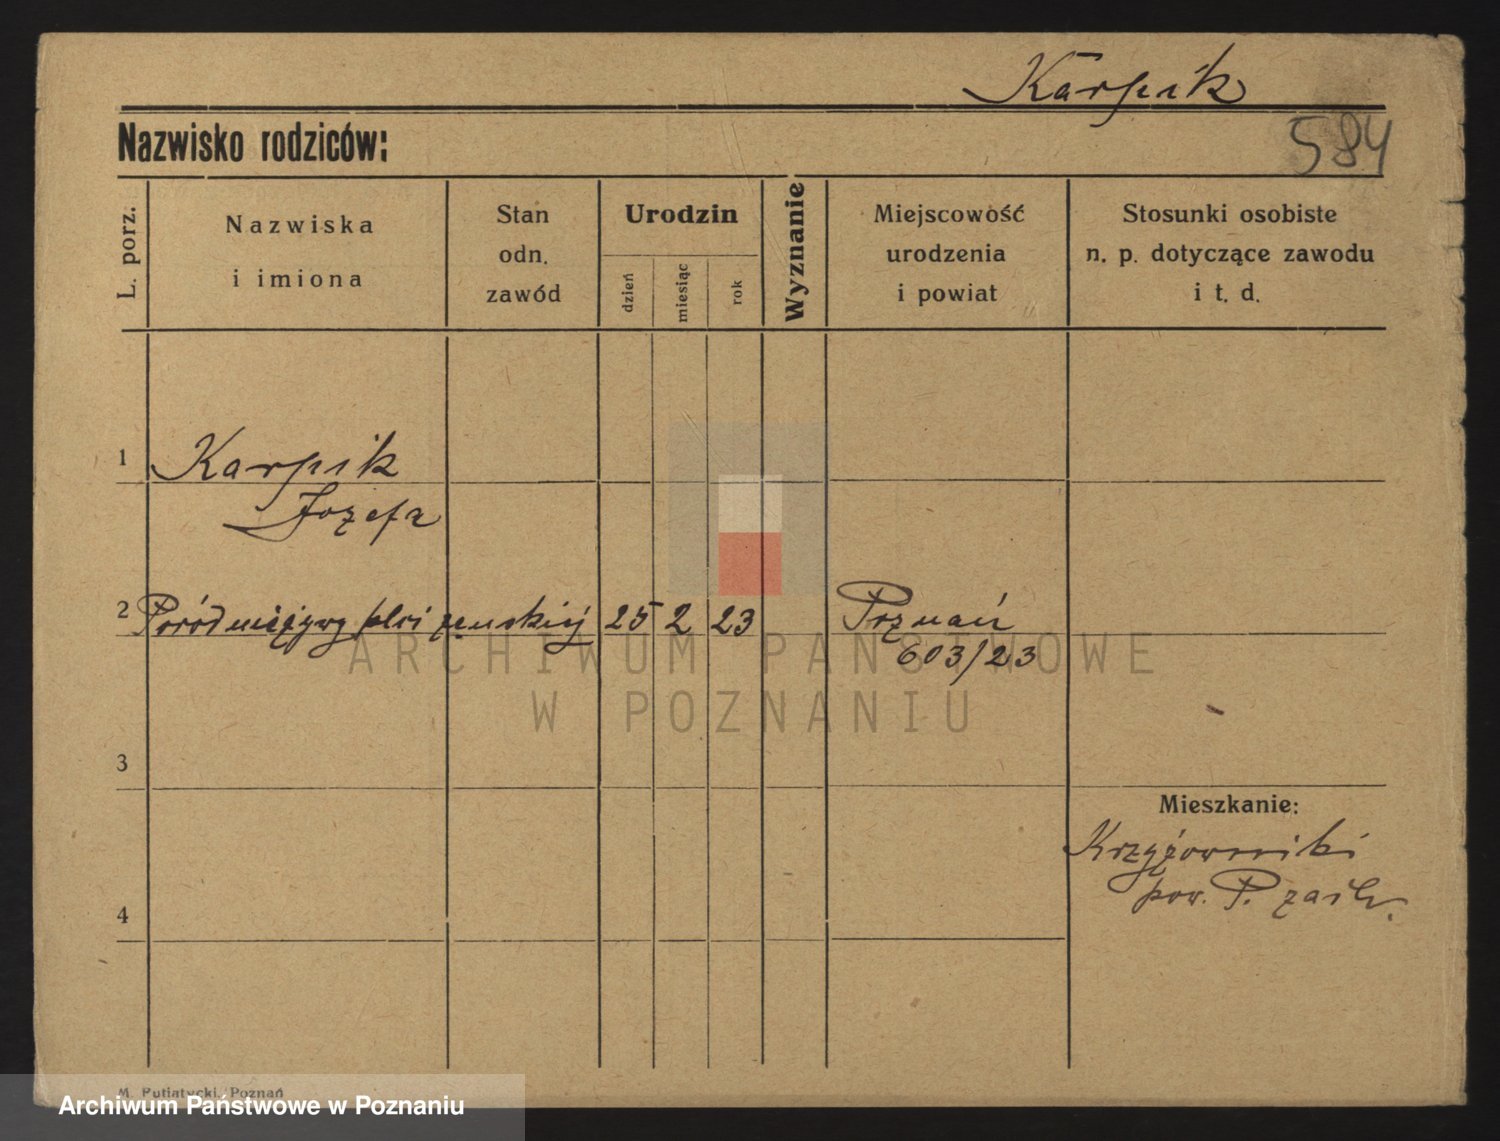 Karpik
Nazwisko rodziców:
584
L. porz.
Nazwiska
i imiona
Stan
odn.
zawód
Urodzin
dzień
miesiąc
rok
Wyznanie
Miejscowość
urodzenia
i powiat
Stosunki osobiste
n. p. dotyczące zawodu
i t. d.
1 Karpik
Józefa
2 Poród nieżywy płci żeńskiej 25 2 23 Poznań
603/23
ARCHIWUM PAŃSTWOWE
W POZNANIU
3
Mieszkanie:
Krzyżowniki
pow. P. zach.
4
M. Putiatycki, Poznań
Archiwum Państwowe w Poznaniu